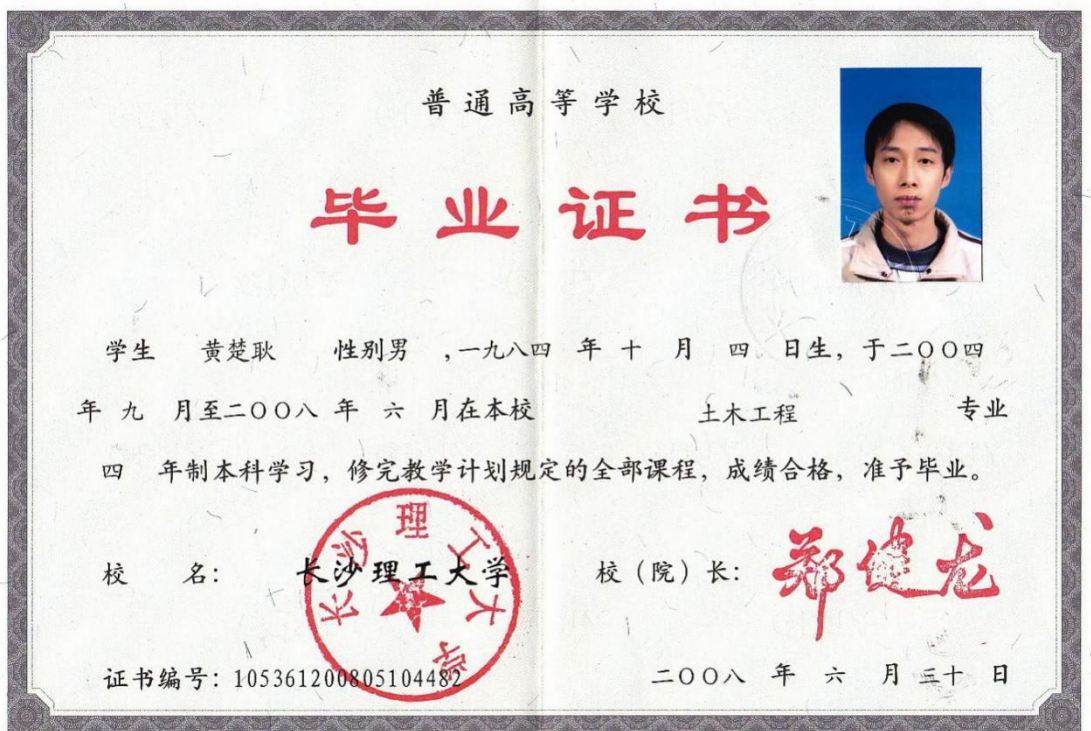 普通高等学校
毕业证书
学生 黄楚耿 性别男 ,一九八四 年 十 月 四 日生,于二〇〇四
年 九 月至二〇〇八 年 六 月在本校 土木工程 专业
四 年制本科学习,修完教学计划规定的全部课程,成绩合格,准予毕业。
校 名: 长沙理工大学 校(院)长: 郑健龙
长沙理工大学
证书编号:105361200805104482 二〇〇八 年 六 月 三十 日